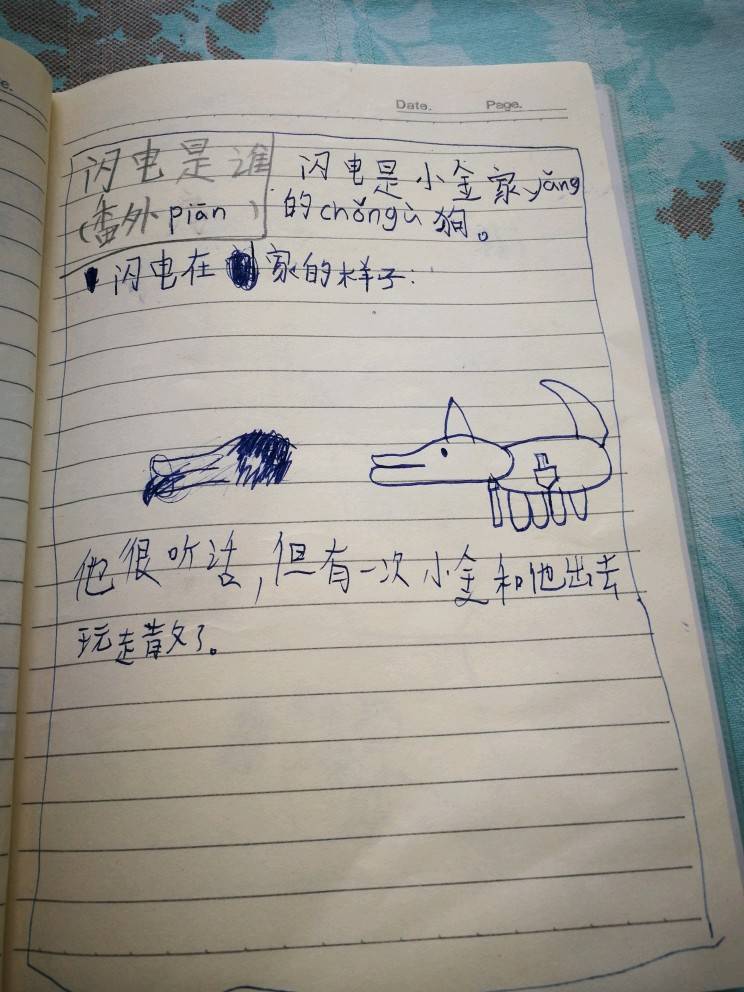 Date. Page.
闪电是谁
(番外 piān)
闪电是小金家yǎng
的chǒngù狗。
闪电在家的样子:
他很听话,但有一次小金和他出去
玩走散了。